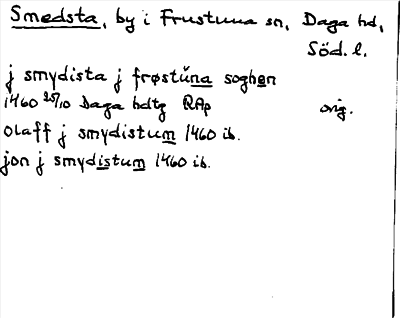 Smedsta, by i Frustuna sn, Daga hd,
Söd. l.
j smydista j frøstŭna soghen
1460 25/10 Daga hdtg RAp orig.
olaff j smydistum 1460 ib.
jon j smydistum 1460 ib.